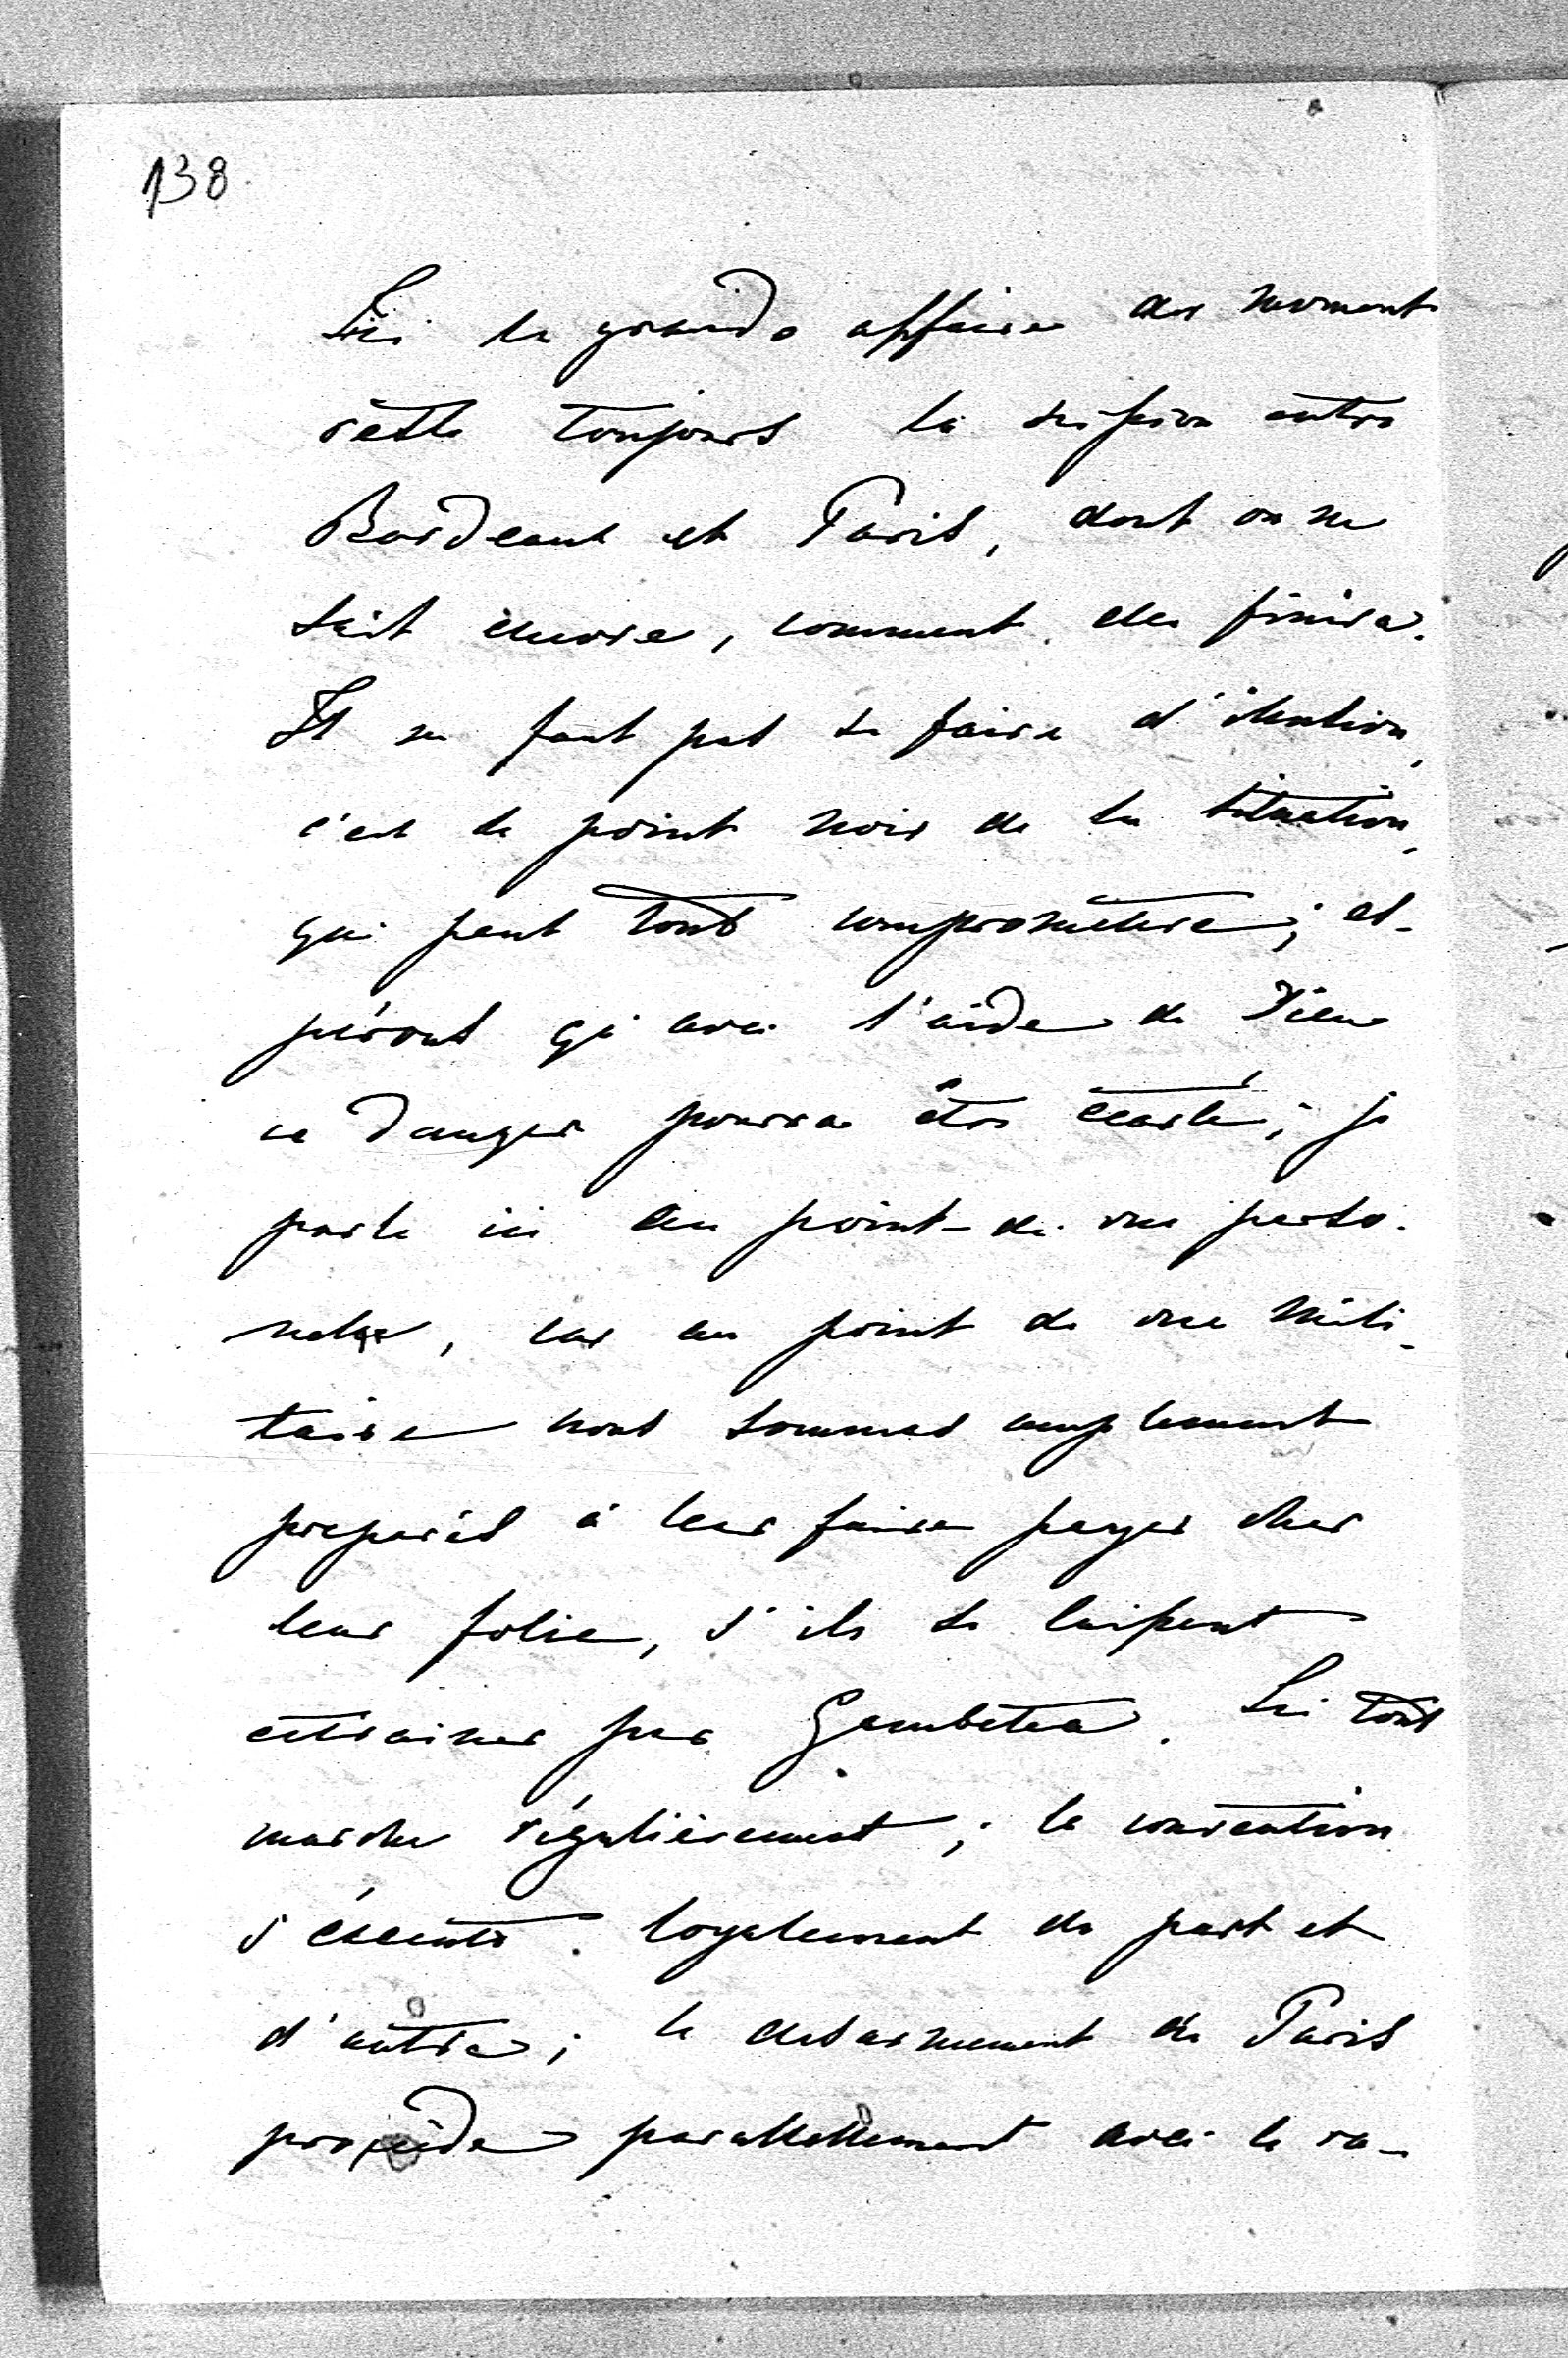 138
Ici la grande affaire du moment
reste toujours la scission entre
Bordeaux et Paris, dont on ne
sait encore, comment elle finira.
Il ne faut pas se faire d'illusion,
c'est le point noir de la situation,
qui peut tout comprometre; es-
pérons qu'avec l'aide de Dieu
ce danger pourra être écarté; je
parle ici au point de vue perso-
nel, car au point de vue mili-
taire nous sommes amplement
preparés à leur faire payer cher
leur folie, s'ils se laissent
entrainer par Gambetta. Ici tout
marche régulièrement; la convention
s'éxecute loyalement de part et
d'autre; le desarmement de Paris
procède parallellement avec le ra-